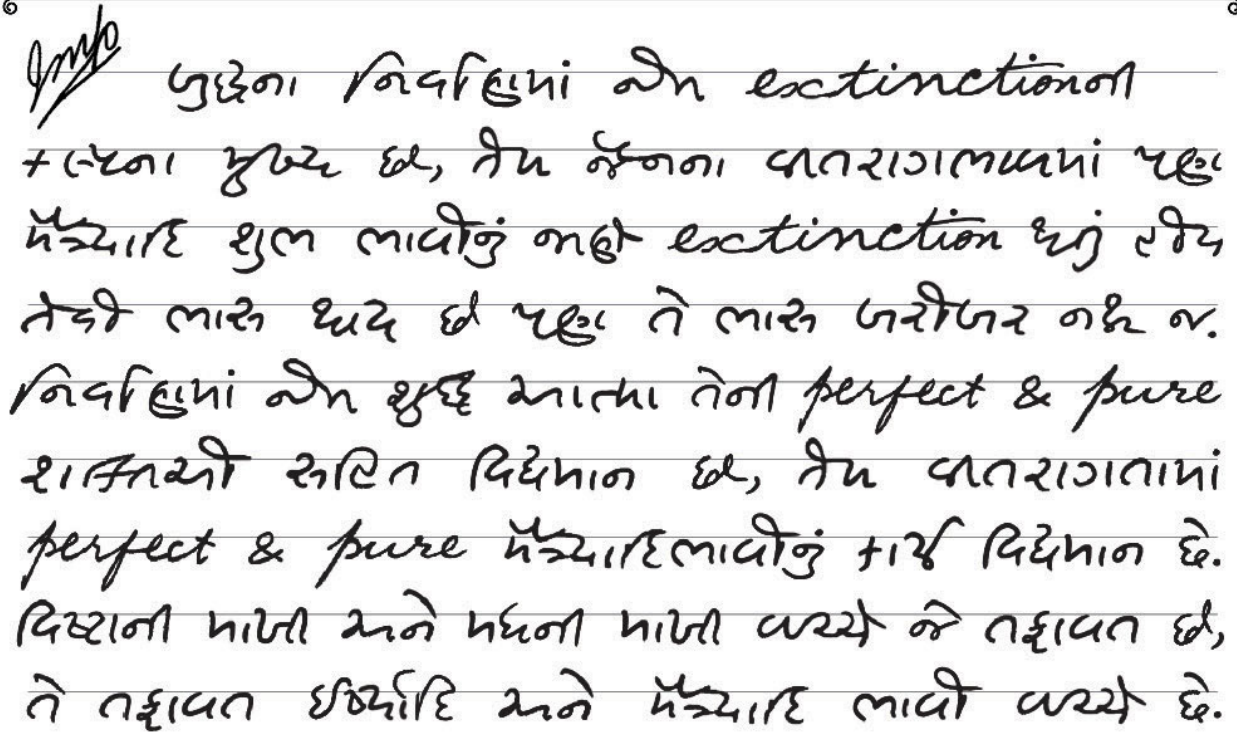 Imp બુદ્ધના નિર્વાણમાં જેમ extinctionની
કલ્પના મુખ્ય છે, તેમ જૈનના વીતરાગભાવમાં પણ
મૈત્ર્યાદિ શુભ ભાવોનું જાણે extinction થતું હોય
તેવો ભાસ થાય છે પણ તે ભાસ બરોબર નથી જ.
નિર્વાણમાં જેમ શુદ્ધ આત્મા તેની perfect & pure
શક્તિઓ સહિત વિદ્યમાન છે, તેમ વીતરાગતામાં
perfect & pure મૈત્ર્યાદિભાવોનું કાર્ય વિદ્યમાન છે.
વિષ્ટાની માખી અને મધની માખી વચ્ચે જે તફાવત છે,
તે તફાવત ઈર્ષ્યાદિ અને મૈત્ર્યાદિ ભાવો વચ્ચે છે.